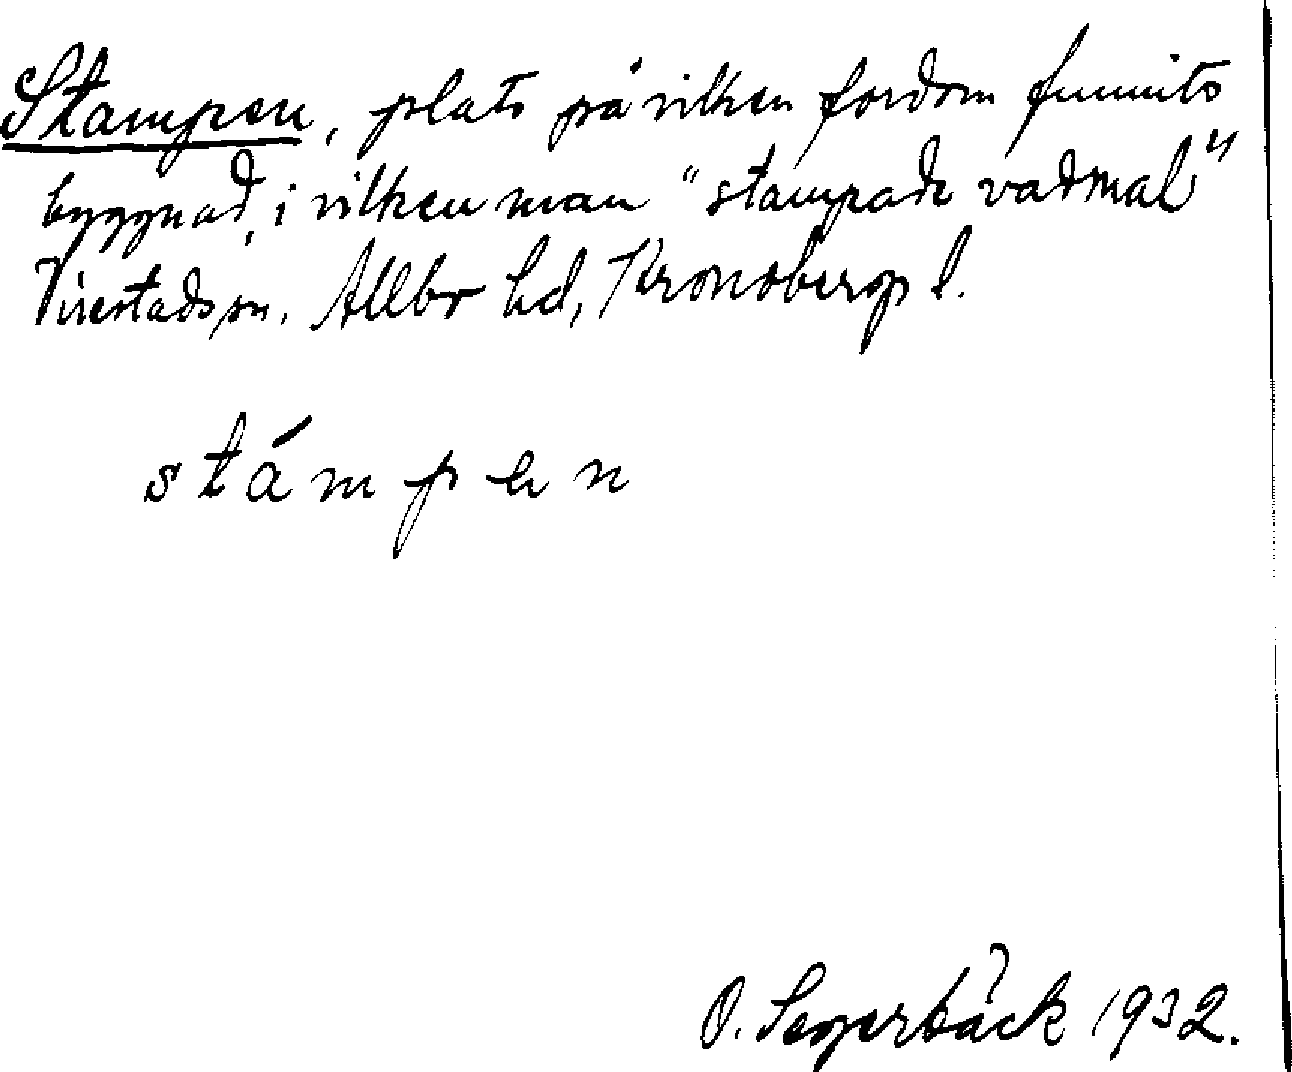 Stampen, plats på vilken fordom funnits
byggnad, i vilken man "stampade vadmal"
Virestads sn. Allbo hd, Kronobergs l.
stámpen
O. Segerbäck 1932.